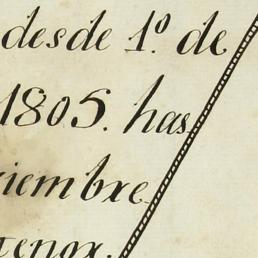 desde 1º de
1805. has
iembre
tenor.